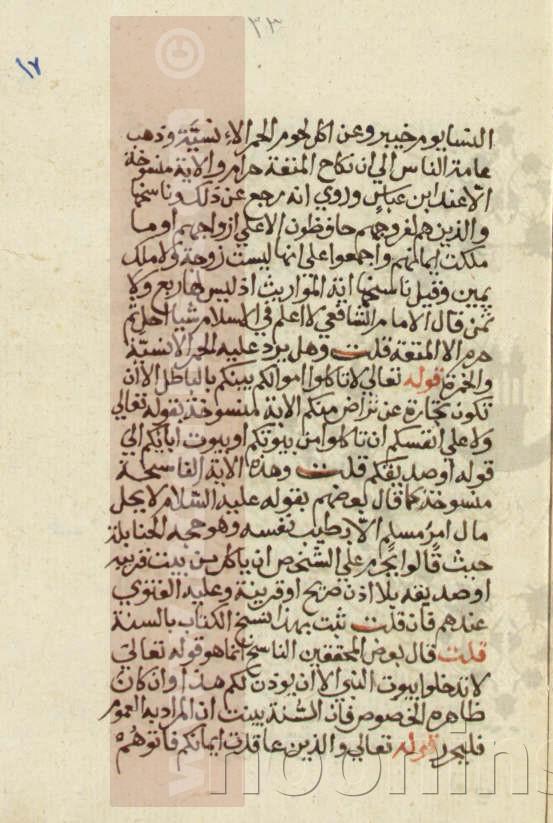 ٣٣
١٧
النسا يوم خيبر وعن اكل لحوم الحمر الانسيَّة وذهب
عامة الناس الي ان نكاح المتعة حرام والاية منسوخة
الا عند ابن عباس وروي انه رجع عن ذلك وناسخها
والذين هم لفروجهم حافظون الا علي ازواجهم او ما
ملكت ايمانهم واجمعوا علي انها ليست زوجة ولا ملك
يمين وقيل ناسخها اية المواريث اذ ليس لها ربع ولا
ثمن قال الامام الشافعي لا اعلم في الاسلام شيا احل ثم
حرم الا المتعة قلت وهل يرد عليه الحمر الانسيَّة
والخمرة قوله تعالي لا تاكلوا اموالكم بينكم بالباطل الا ان
تكون تجارة عن تراض منكم الاية منسوخة بقوله تعالي
ولا علي انفسكم ان تاكلوا من بيوتكم او بيوت ابايكم الي
قوله او صديقكم قلت وهذه الاية الناسخة
منسوخة كما قال بعضهم بقوله عليه السَّلام لا يحل
مال امرُ مسلمٍ الَّا بطيب نفسه وهو حجة الحنابلة
حيث قالوا يحرم علي الشخص ان ياكل من بيت قريبه
او صديقه بلا اذن صريح او قرينة وعليه الفتوي
عندهم فان قلت ثبت بهذا نسخ الكتاب بالسنة
قلت قال بعض المحققين الناسخ انما هو قوله تعالي
لا تدخلوا بيوت النبي الا ان يوذن لكم هذا وان كان
ظاهره الخصوص فان السُّنة بينت ان المراد به العموم
فليحرر قوله تعالي والذين عاقدت ايمانكم فاتوهُمْ
noorlins